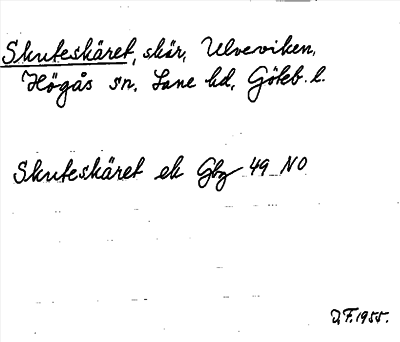 Skuteskäret, skär, Ulveviken,
Högås sn, Lane hd, Göteb. l.
Skuteskäret ek Gbg 49 NO
D.F. 1955.